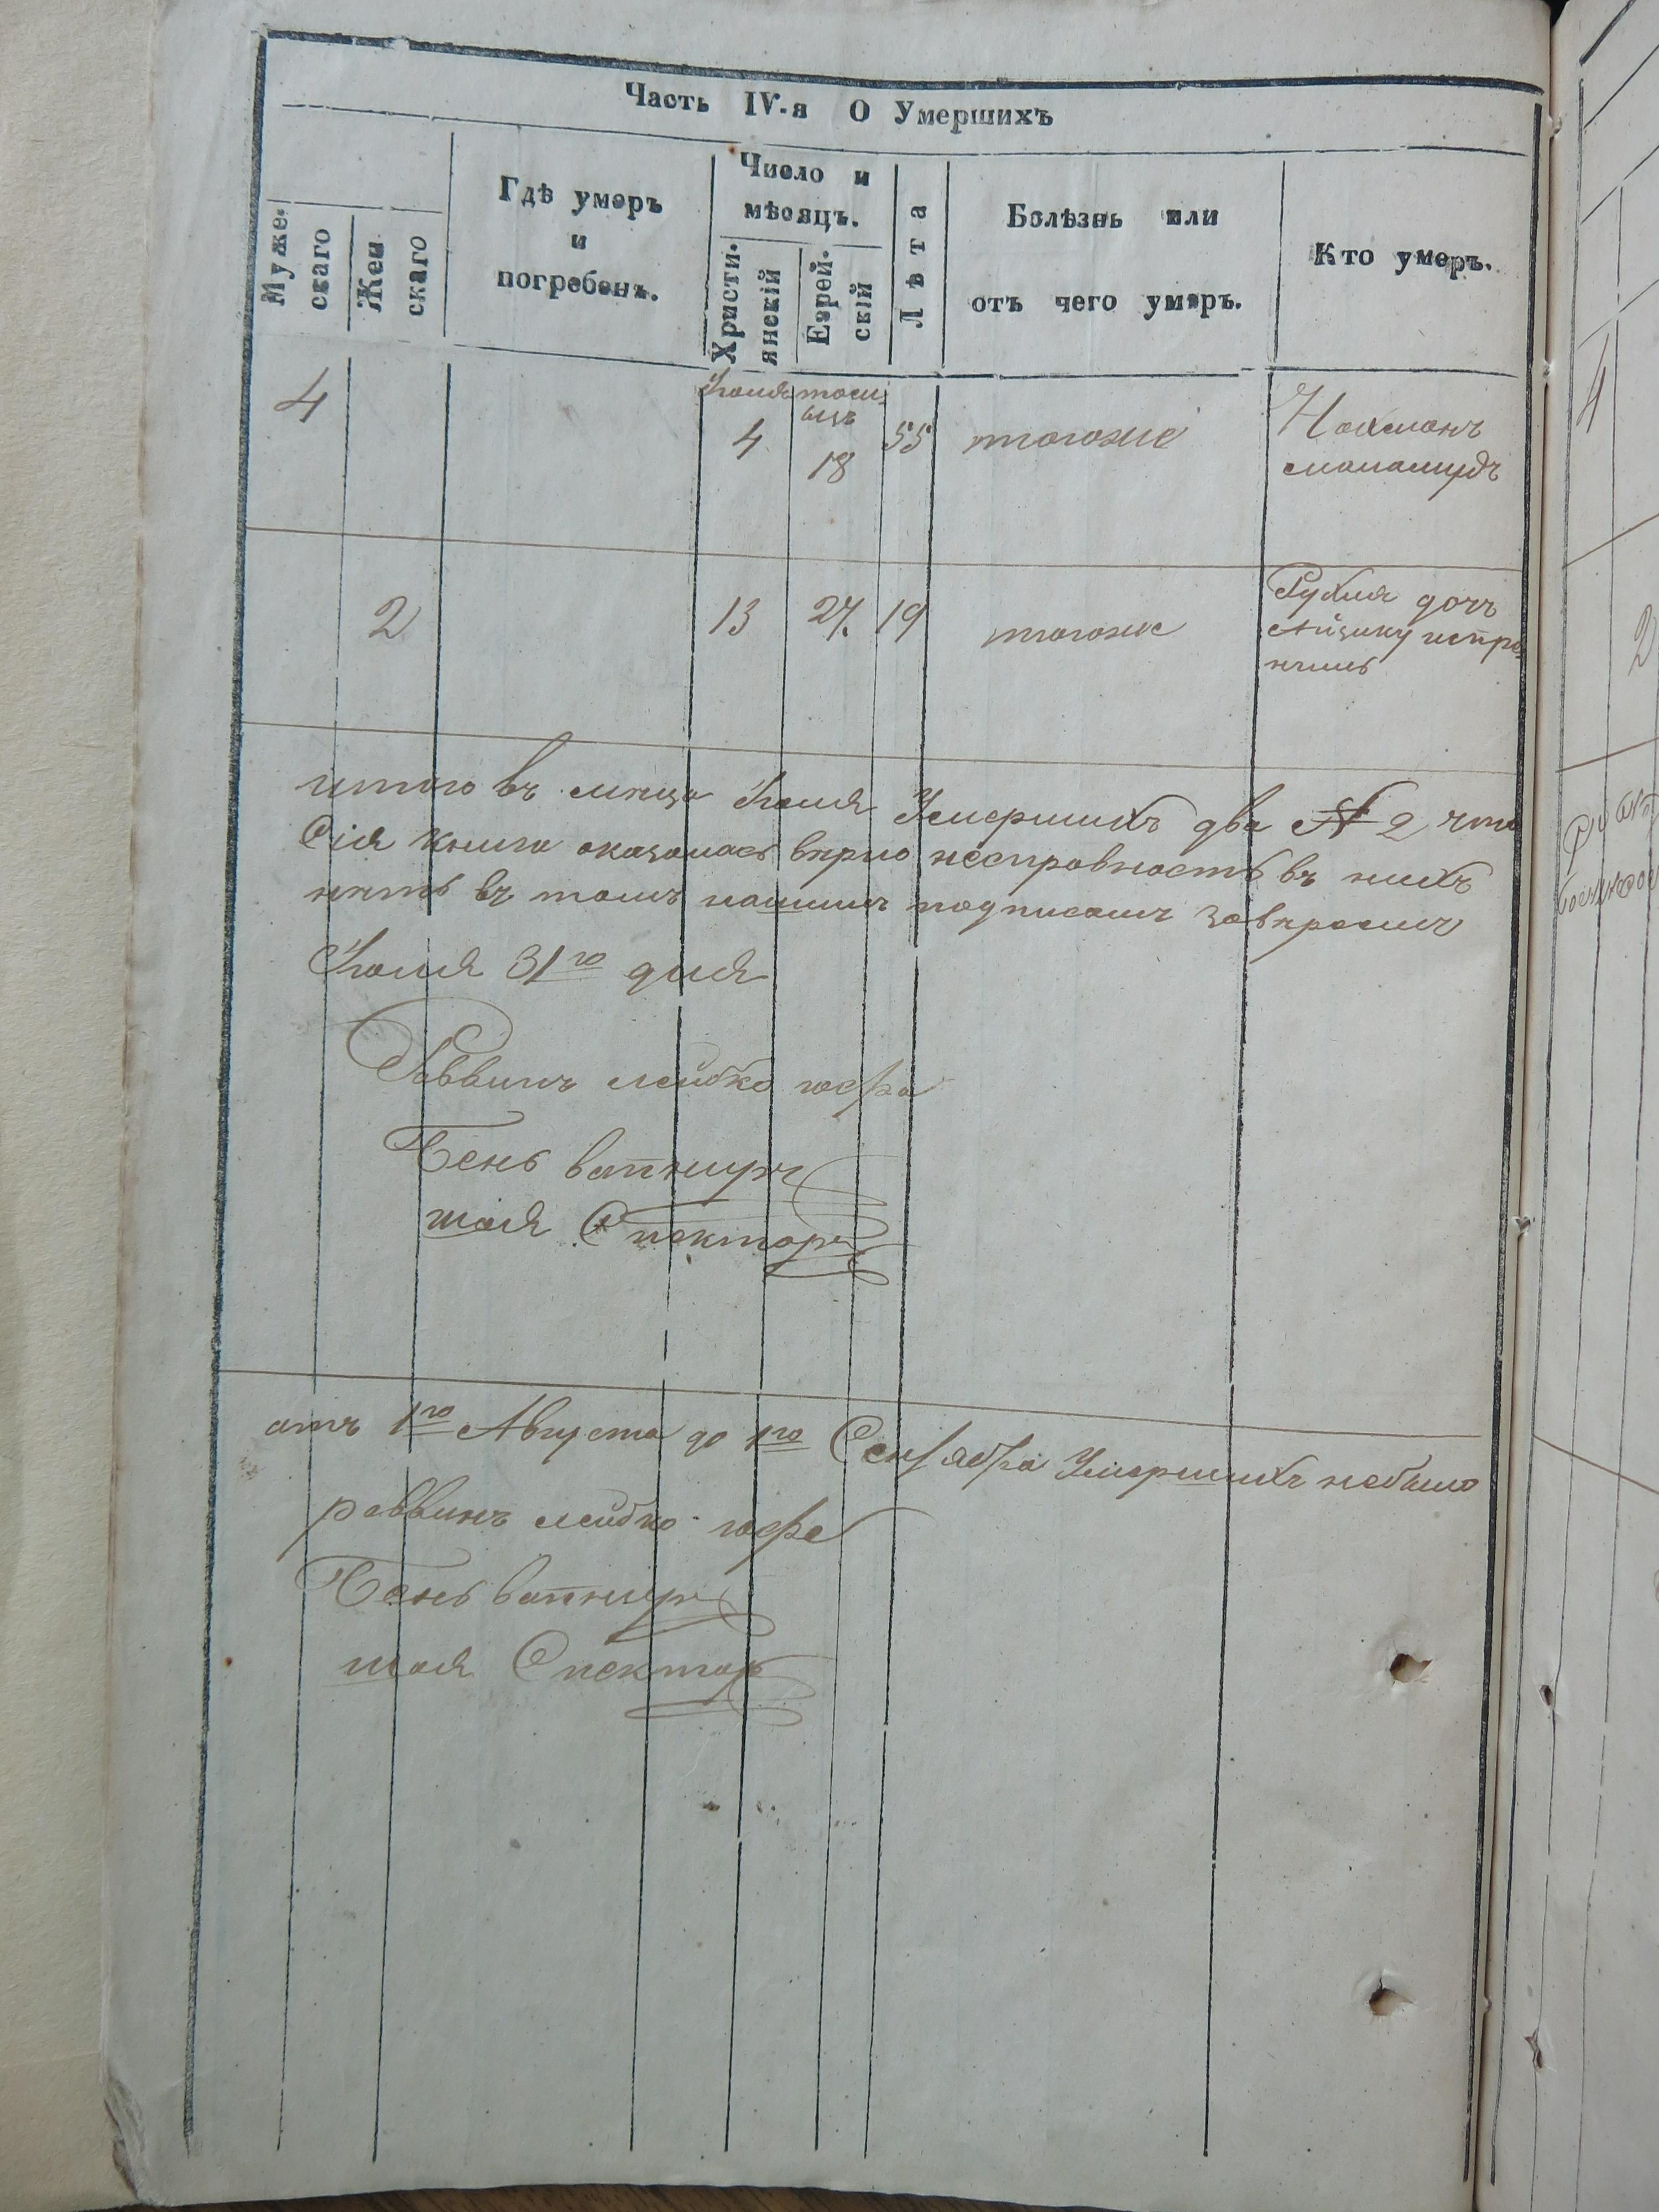 Часть IV-я О Умершихъ
Муже-
скаго
Жен
скаго
Гдѣ умеръ
и
погребенъ.
Число и
мѣсяцъ.
Христи-
янскій
Еврей-
скій
Лѣта
Болѣзнь или
отъ чего умеръ.
Кто умеръ.
4
Іюля
4
18
55
тогоже
Нахманъ
2
13
27.
19
тогоже
Рухля дочъ
Айзику
итого въ мца Іюля Умершихъ два № 2 что
Сія книга оказалась вѣрно несправность въ нихъ
нѣтъ въ томъ нашимъ подписамъ завѣраемъ
Іюля 31го дня
Раввинъ лейбко юфра
Бень вапняръ
шая Спекторъ
отъ 1го Августа до 1го Сентября Умершихъ небыло
раввинъ лейбко юфре
Бень вапняръ
шая Спекторъ
4
2